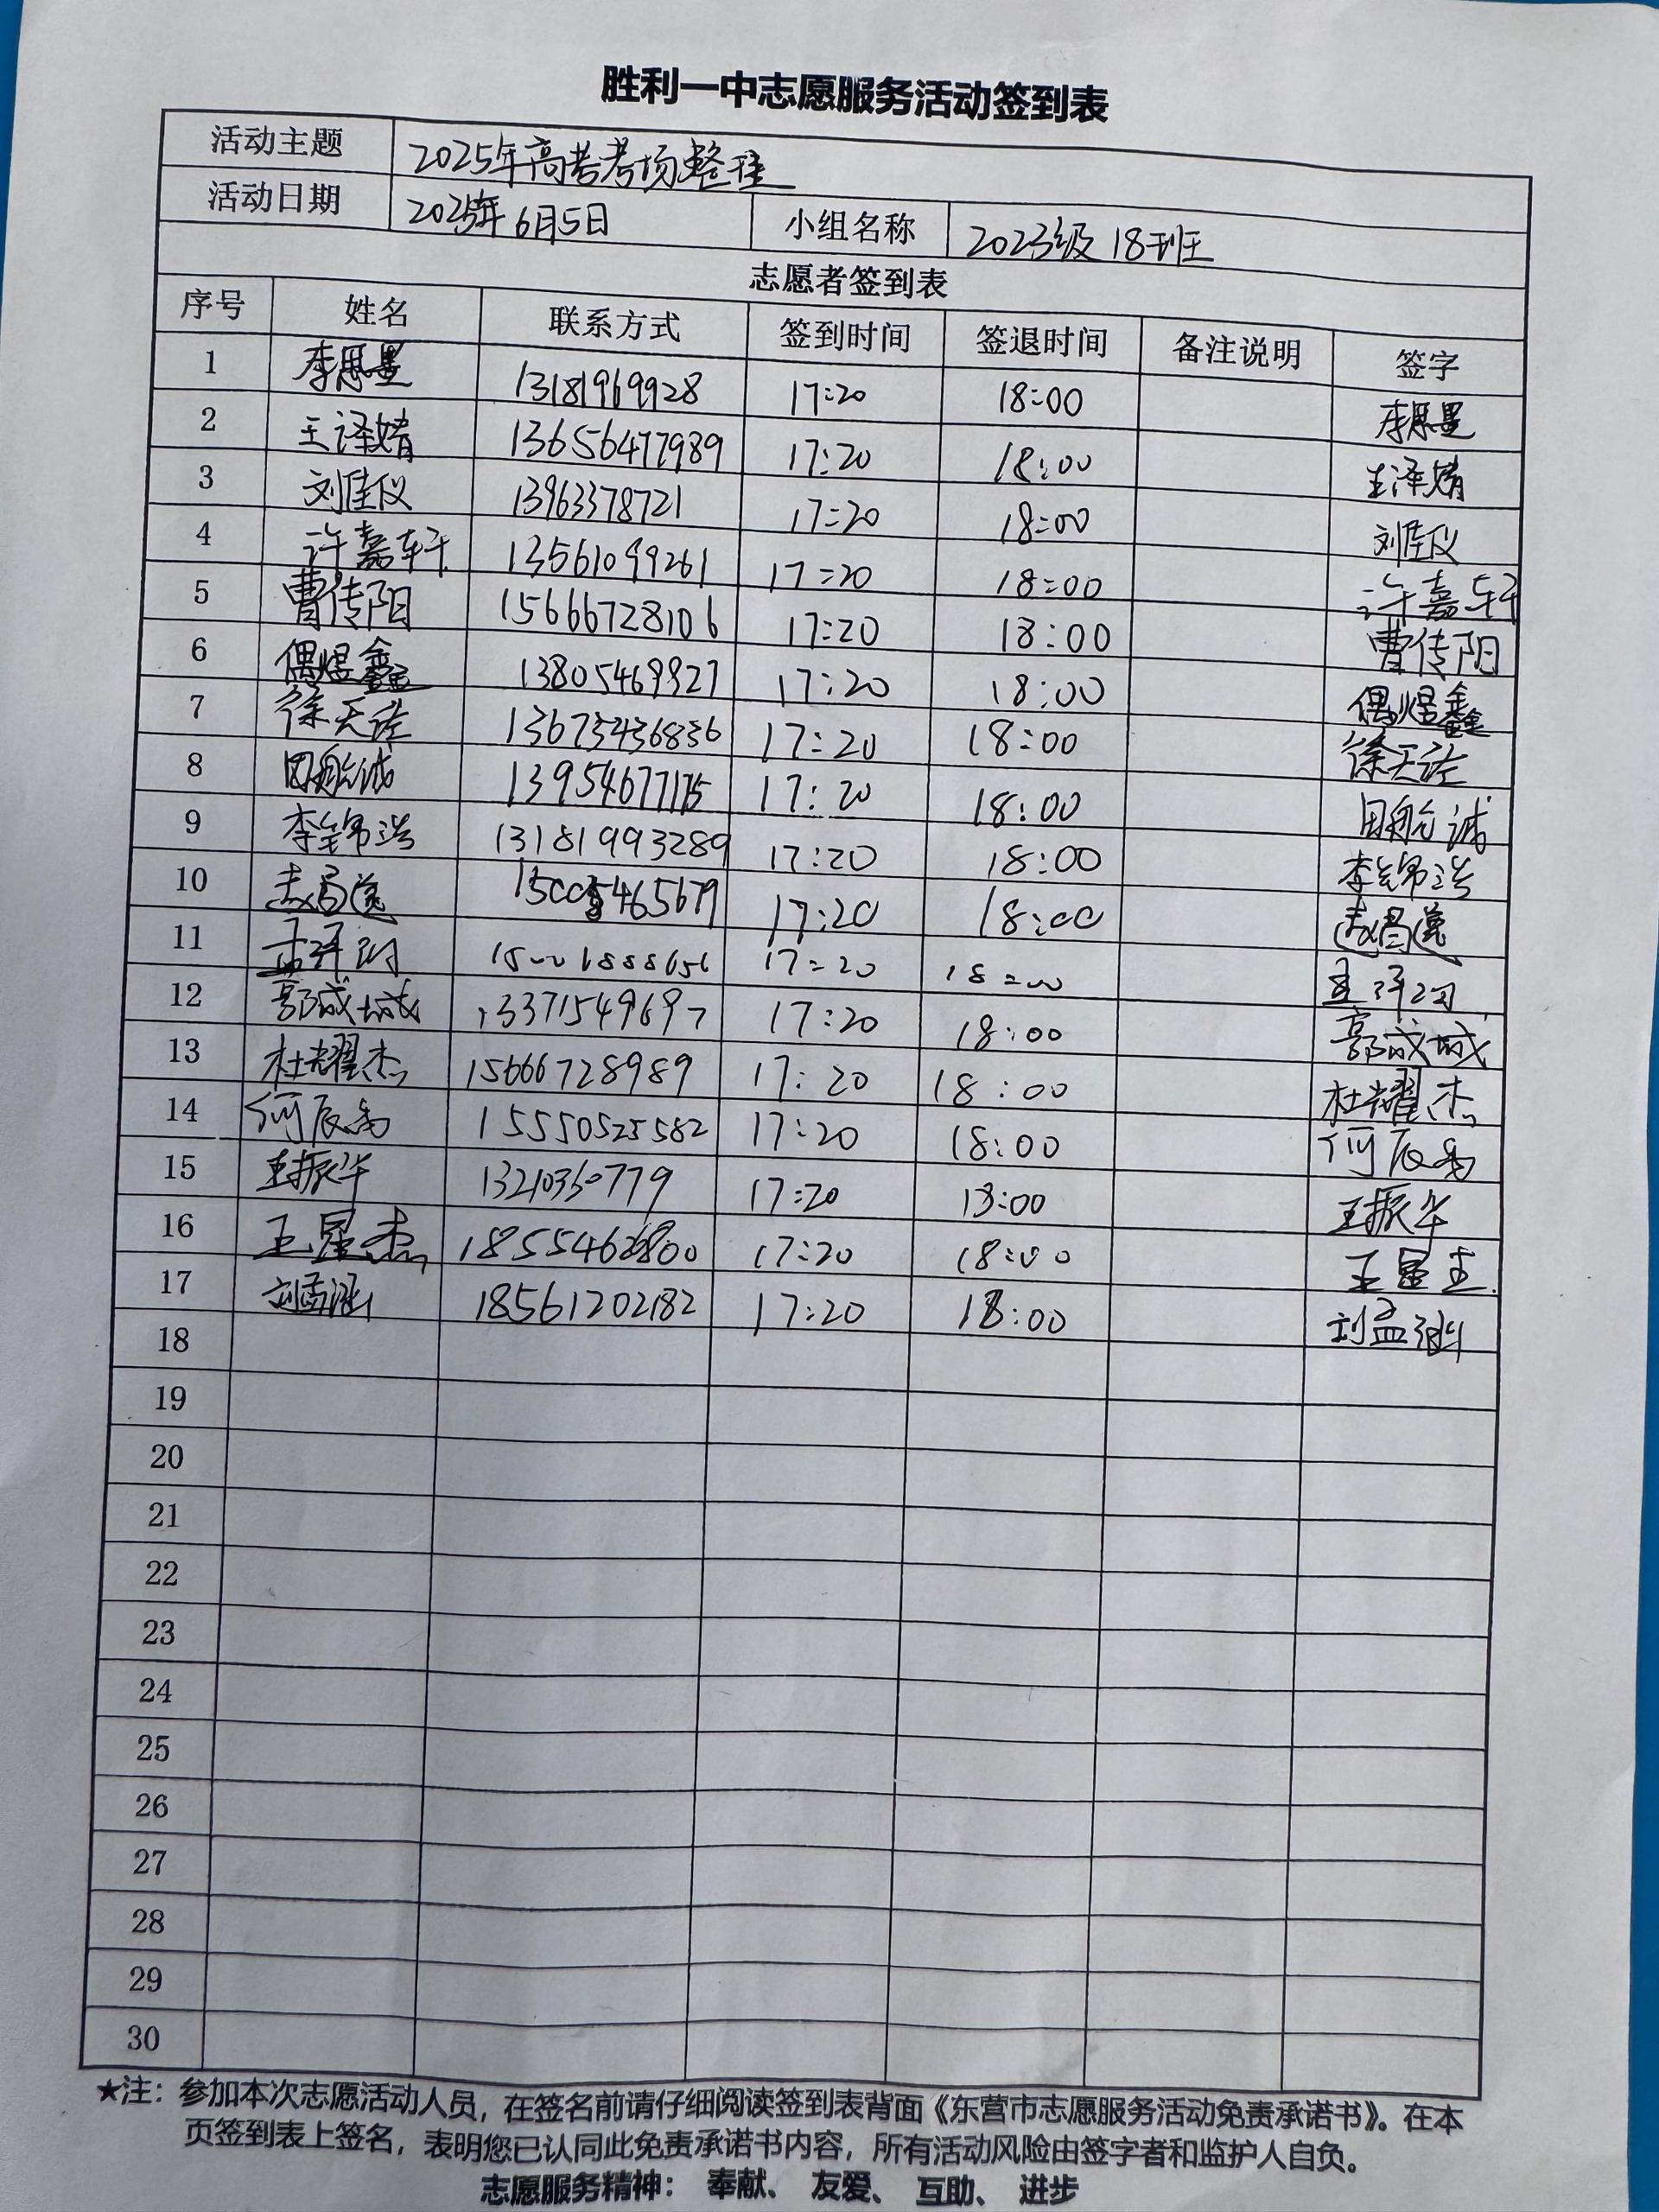 胜利一中志愿服务活动签到表
活动主题 2025年高考考场整理
活动日期 2025年6月5日 小组名称 2023级18班
志愿者签到表
序号 姓名 联系方式 签到时间 签退时间 备注说明 签字
1 李思墨 13181969928 17:20 18:00 李思墨
2 王译婧 13656477989 17:20 18:00 王泽婧
3 刘佳仪 13963378721 17:20 18:00 刘佳仪
4 许嘉轩 13561099261 17:20 18:00 许嘉轩
5 曹传阳 15666728106 17:20 18:00 曹传阳
6 偶煜鑫 13805469927 17:20 18:00 偶煜鑫
7 徐天 17:20 18:00 徐天
8 田航诚 17:20 18:00 田航诚
9 李锦浩 13181993289 17:20 18:00 李锦浩
10 15005465679 17:20 18:00
11 17:20 18:00
12 郭成城 17:20 18:00 郭成城
13 杜耀杰 15666728989 17:20 18:00 杜耀杰
14 何辰禹 15550525582 17:20 18:00 何辰禹
15 王振华 13210350779 17:20 18:00 王振华
16 王星杰 17:20 18:00 王星杰
17 刘孟涵 18561202182 17:20 18:00 刘孟涵
18
19
20
21
22
23
24
25
26
27
28
29
30
★注：参加本次志愿活动人员，在签名前请仔细阅读签到表背面《东营市志愿服务活动免责承诺书》。在本
页签到表上签名，表明您已认同此免责承诺书内容，所有活动风险由签字者和监护人自负。
志愿服务精神： 奉献、 友爱、 互助、 进步